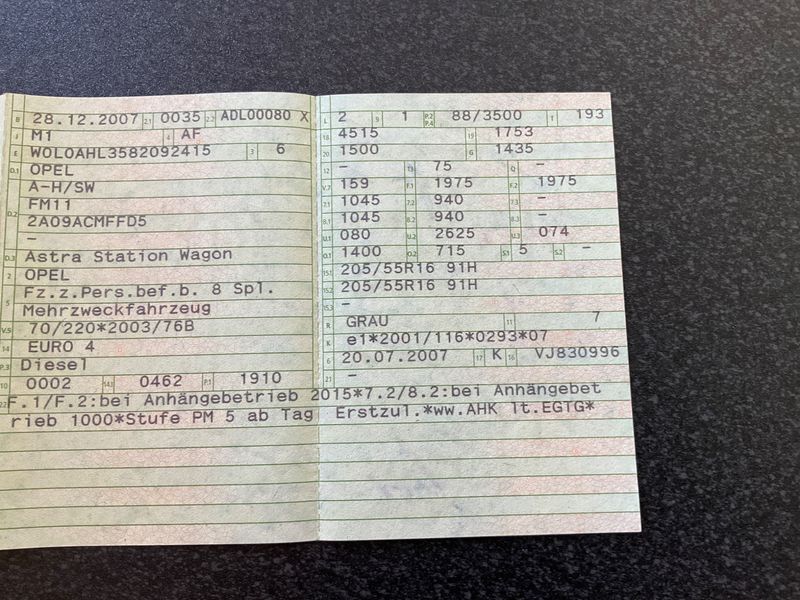 B 28.12.2007 2.1 0035 2.2 ADL00080 X
J M1 4 AF
E W0L0AHL3582092415 3 6
D.1 OPEL
A-H/SW
D.2 FM11
2A09ACMFFD5
-
D.3 Astra Station Wagon
2 OPEL
5 Fz.z.Pers.bef.b. 8 Spl.
Mehrzweckfahrzeug
V.9 70/220*2003/76B
14 EURO 4
P.3 Diesel
10 0002 14.1 0462 P.1 1910
L 2 9 1 P.2 P.4 88/3500 T 193
18 4515 19 1753
20 1500 G 1435
12 - 13 75 Q -
V.7 159 F.1 1975 F.2 1975
7.1 1045 7.2 940 7.3 -
8.1 1045 8.2 940 8.3 -
U.1 080 U.2 2625 U.3 074
O.1 1400 O.2 715 S.1 5 S.2 -
15.1 205/55R16 91H
15.2 205/55R16 91H
15.3 -
R GRAU 11 7
K e1*2001/116*0293*07
6 20.07.2007 17 K 16 VJ830996
21 -
22 F.1/F.2:bei Anhängebetrieb 2015*7.2/8.2:bei Anhängebet
rieb 1000*Stufe PM 5 ab Tag Erstzul.*ww.AHK lt.EGTG*